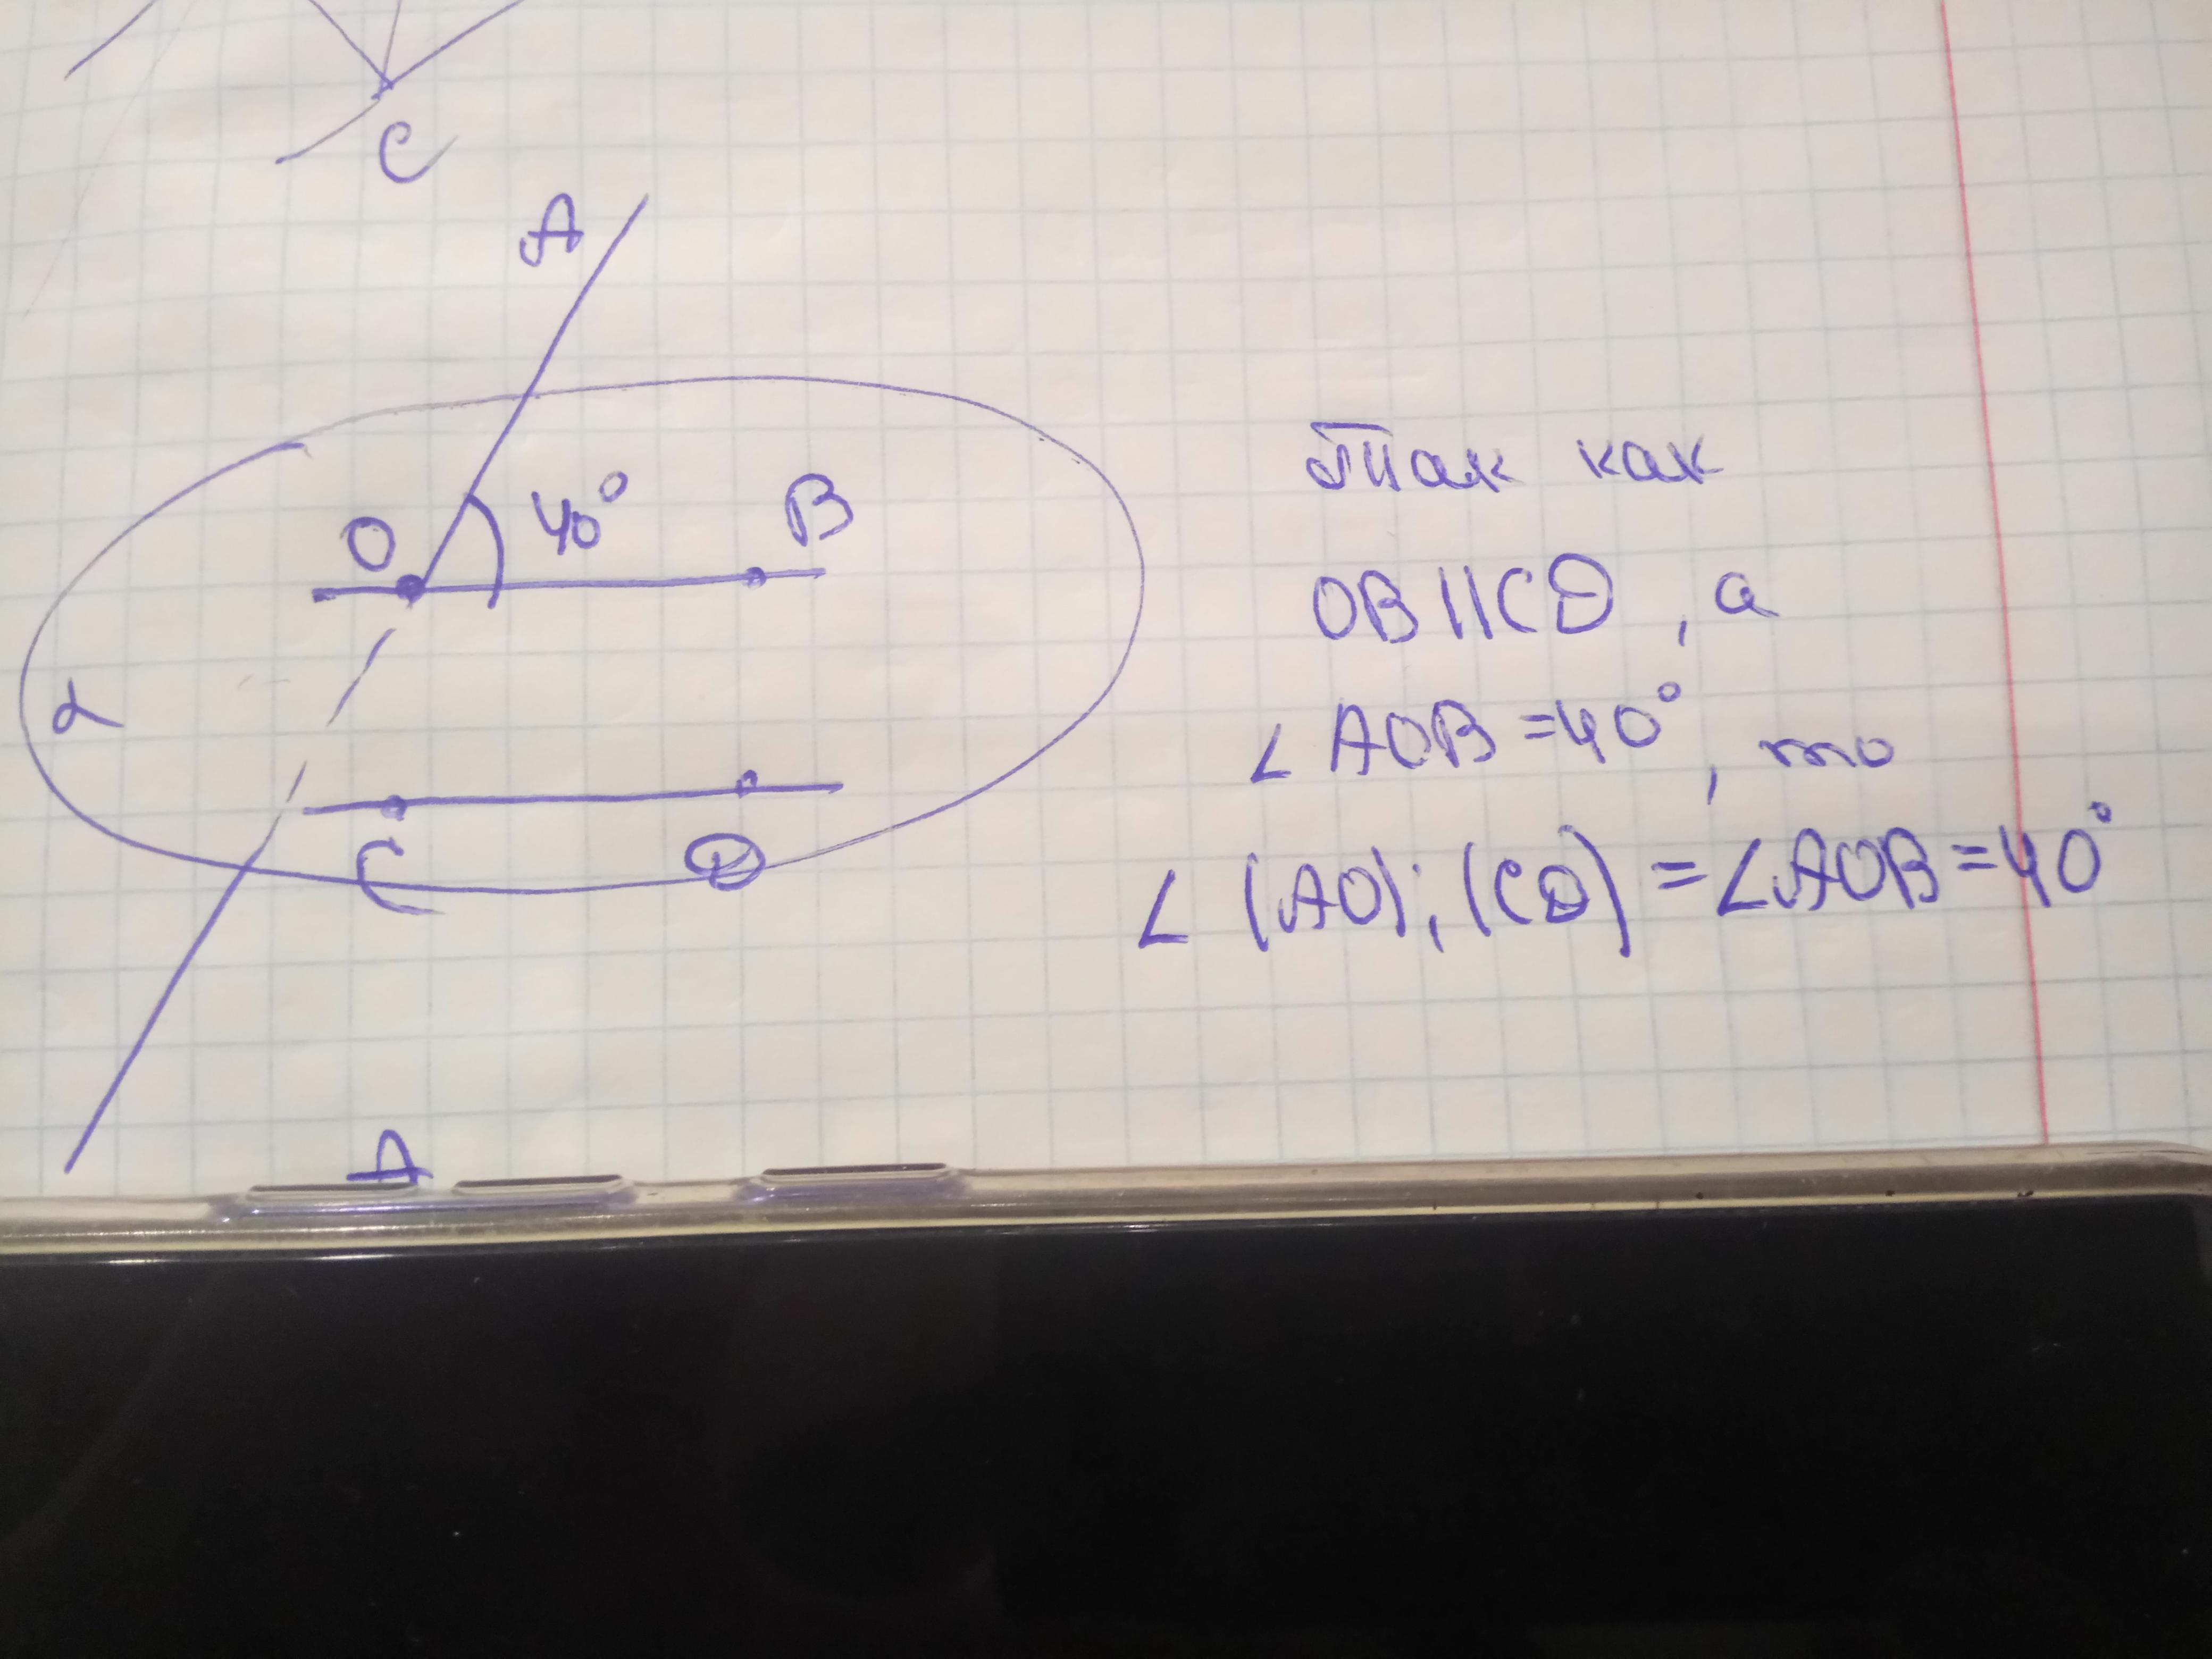 C
A
O 40° B
α
C D
A
Так как
OB||CD, а
∠AOB=40°, то
∠(AO);(CD)=∠AOB=40°